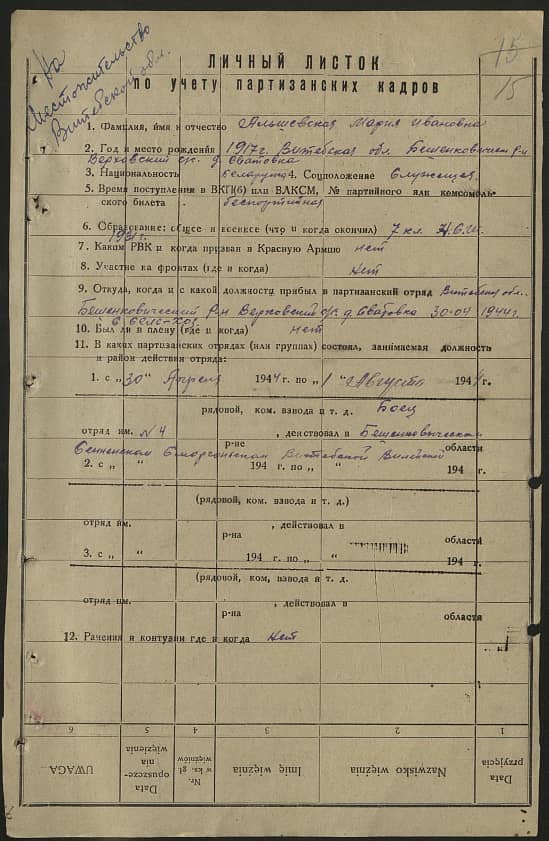 На
Местожительство
Витебской обл.
15
15
ЛИЧНЫЙ ЛИСТОК
по учету партизанских кадров
1. Фамилия, имя и отчество Альшевская Мария Ивановна
2. Год и место рождения 1917 г. Витебская обл. Бешенковичский р-н
Верховский с/с. д. Сватовка
3. Национальность Беларуска 4. Соцположение Служащая
5. Время поступления в ВКП(б) или ВЛКСМ, № партийного или комсомоль-
ского билета беспартийная
6. Образование: общее и военное (что и когда окончил) 7 кл. Н.С.Ш.
1931г.
7. Каким РВК и когда призван в Красную Армию нет
8. Участие на фронтах (где и когда) Нет
9. Откуда, когда и с какой должности прибыл в партизанский отряд Витебская обл.
Бешенковический р-н Верховский с/с д. Сватовка 30-04 1944г.
10. Был ли в плену (где и когда) нет
11. В каких партизанских отрядах (или группах) состоял, занимаемая должность
и район действия отряда:
1. с „30" Апреля 1944 г. по „1" Августа 1944 г.
рядовой, ком. взвода и т. д. Боец
отряд им. №4 , действовал в Бешенковическом
р-не области
Сенненском Сморгоньском Витебской Вилейской
2. с „ " 194 г. по „ " 194 г.
(рядовой, ком. взвода и т. д.)
отряд им. , действовал в
р-на области
3. с „ " 194 г. по „ " 194 г.
(рядовой, ком, взвода и т. д.
отряд им. , действовал в
р-на области
12. Ранения и контузии где и когда Нет
Data przyjęcia
Nazwisko więźnia
Imię więźnia
Nr. w ks. gł. więźniów
Data opuszcze-nia więzienia
UWAGA
1 2 3 4 5 6